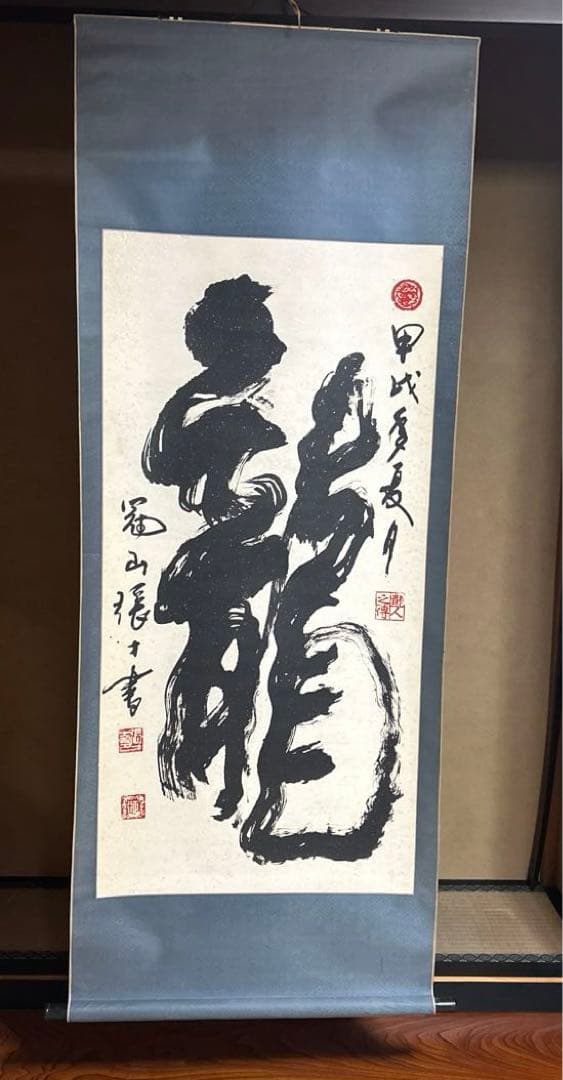 甲戌年夏月
龍
冠山張書